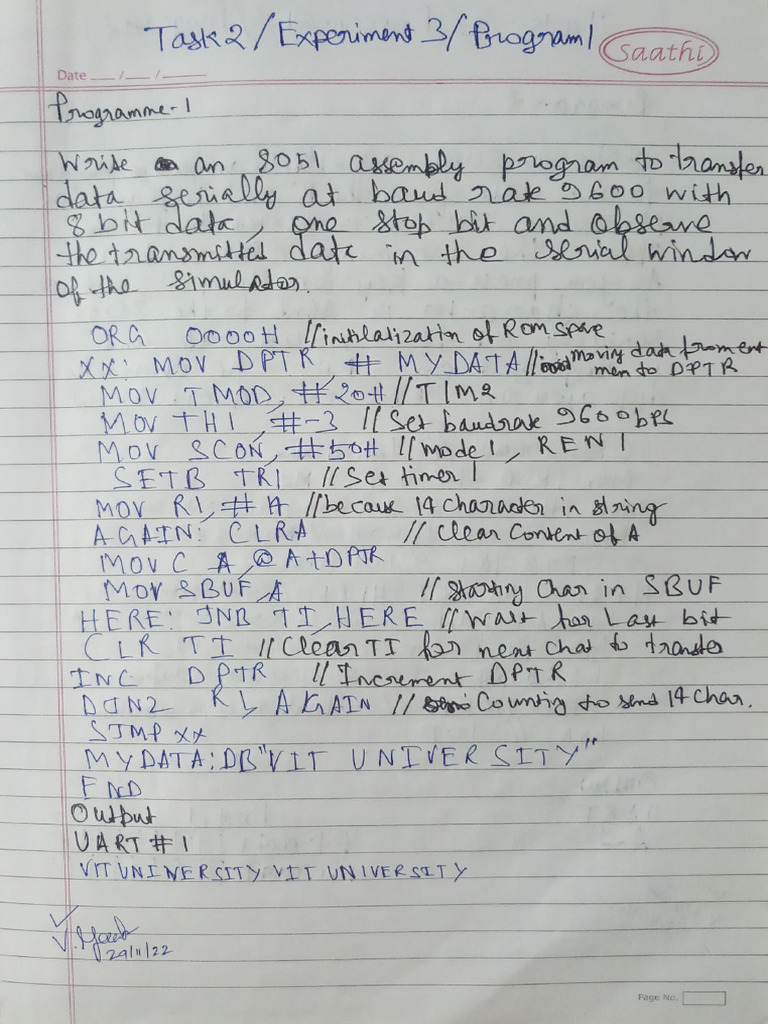 Task 2 / Experiment 3 / Program 1
Saathi
Date ___ / ___ / ___
Programme-1
Write an 8051 assembly program to transfer
data serially at baud rate 9600 with
8 bit data, one stop bit and observe
the transmitted data in the serial window
of the simulator.
ORG 0000H //initilalization of Rom space
XX: MOV DPTR # MYDATA // moving data from ent
mem to DPTR
MOV TMOD, #20H // TIM2
MOV TH1, #-3 // Set baudrate 9600bps
MOV SCON, #50H // mode 1, REN 1
SETB TR1 // Set timer 1
MOV R1, #14 //because 14 character in string
AGAIN: CLRA // Clear Content of A
MOV C A, @ A+DPTR
MOV SBUF, A // Starting Char in SBUF
HERE: JNB TI, HERE // Wait for Last bit
CLR TI // Clear TI for next char to transfer
INC DPTR // Increment DPTR
DJNZ R1, AGAIN // Counting to send 14 char.
SJMP XX
MYDATA: DB "VIT UNIVERSITY"
END
Output
UART #1
VIT UNIVERSITY VIT UNIVERSITY
29/11/22
Page No.